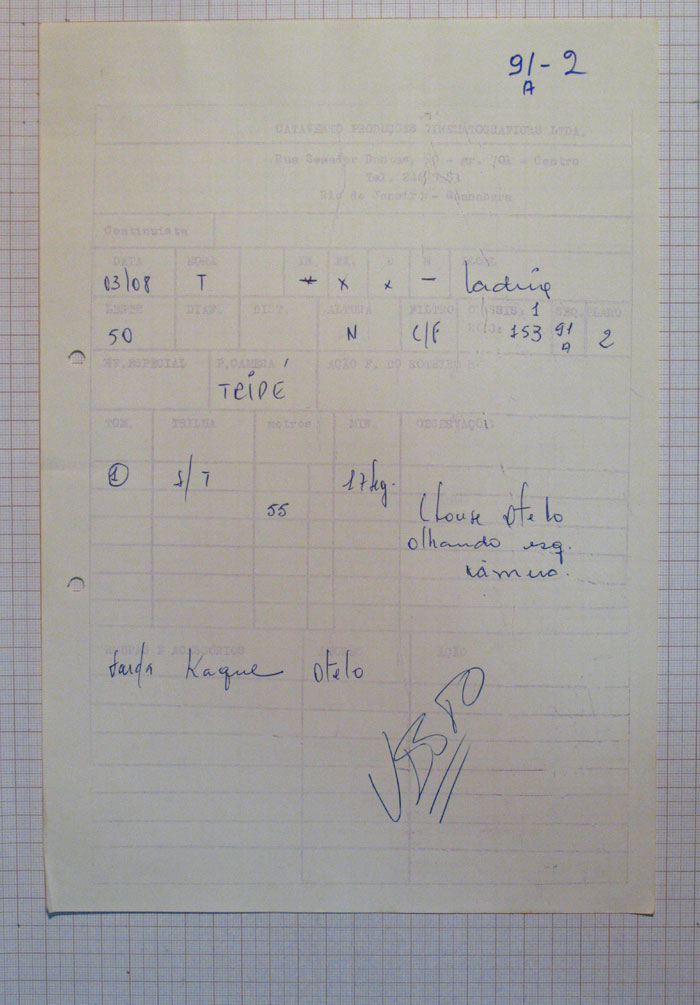 91 - 2
A
CATAVENTO PRODUÇÕES CINEMATOGRAFICAS LTDA.
Rua Senador Dantas, - Centro
Tel.
Rio de Janeiro - Guanabara
Continuista
DATA HORA IN. EX. D N LOCAL
03/08 T x x x -
LENTE DIAF. DIST. ALTURA FILTRO CHASSIS: 1 SEQ. PLANO
50 N C/F 153 91 A 2
EF. ESPECIAL P. CAMERA AÇÃO P. DO ROTEIRO
TRIPÉ
TOM. TRILHA metros MIN. OBSERVAÇÕES
1 S/T 17 seg.
55
Clouse Otelo
olhando esq.
câmera.
ROUPAS E ACESSÓRIOS AÇÃO
farda Kaque Otelo
VISTO